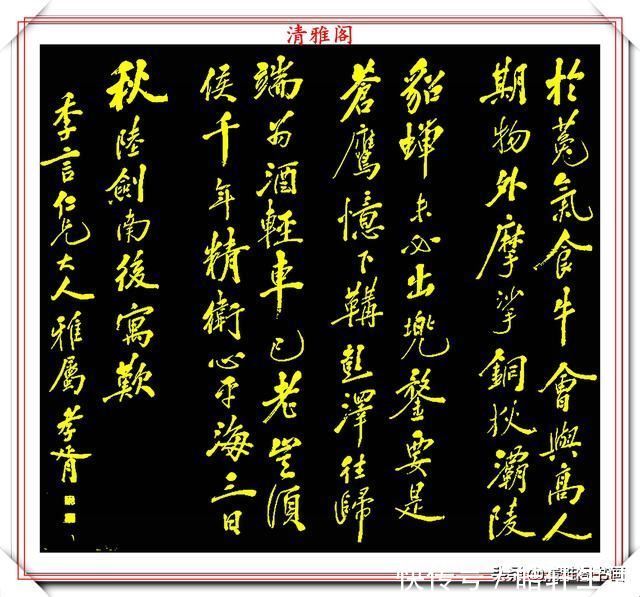 清雅阁
於菟氣食牛會與高人
期物外摩挲銅狄灞陵
貂蟬未必出兜鍪要是
蒼鷹憶下鞲彭澤往歸
端為酒輕車已老豈須
侯千年精衛心平海三日
秋陸劍南後寓歎
季言仁兄大人雅屬孝胥
快传号
清雅阁书画